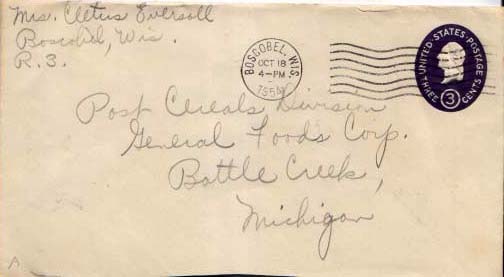 Mrs. Cletus Eversoll
Boscobel, Wis.
R.3.
BOSCOBEL, WIS.
OCT 18
4-PM
1954
UNITED·STATES·POSTAGE
THREE 3 CENTS
Post Cereals Division
General Foods Corp.
Battle Creek,
Michigan
A